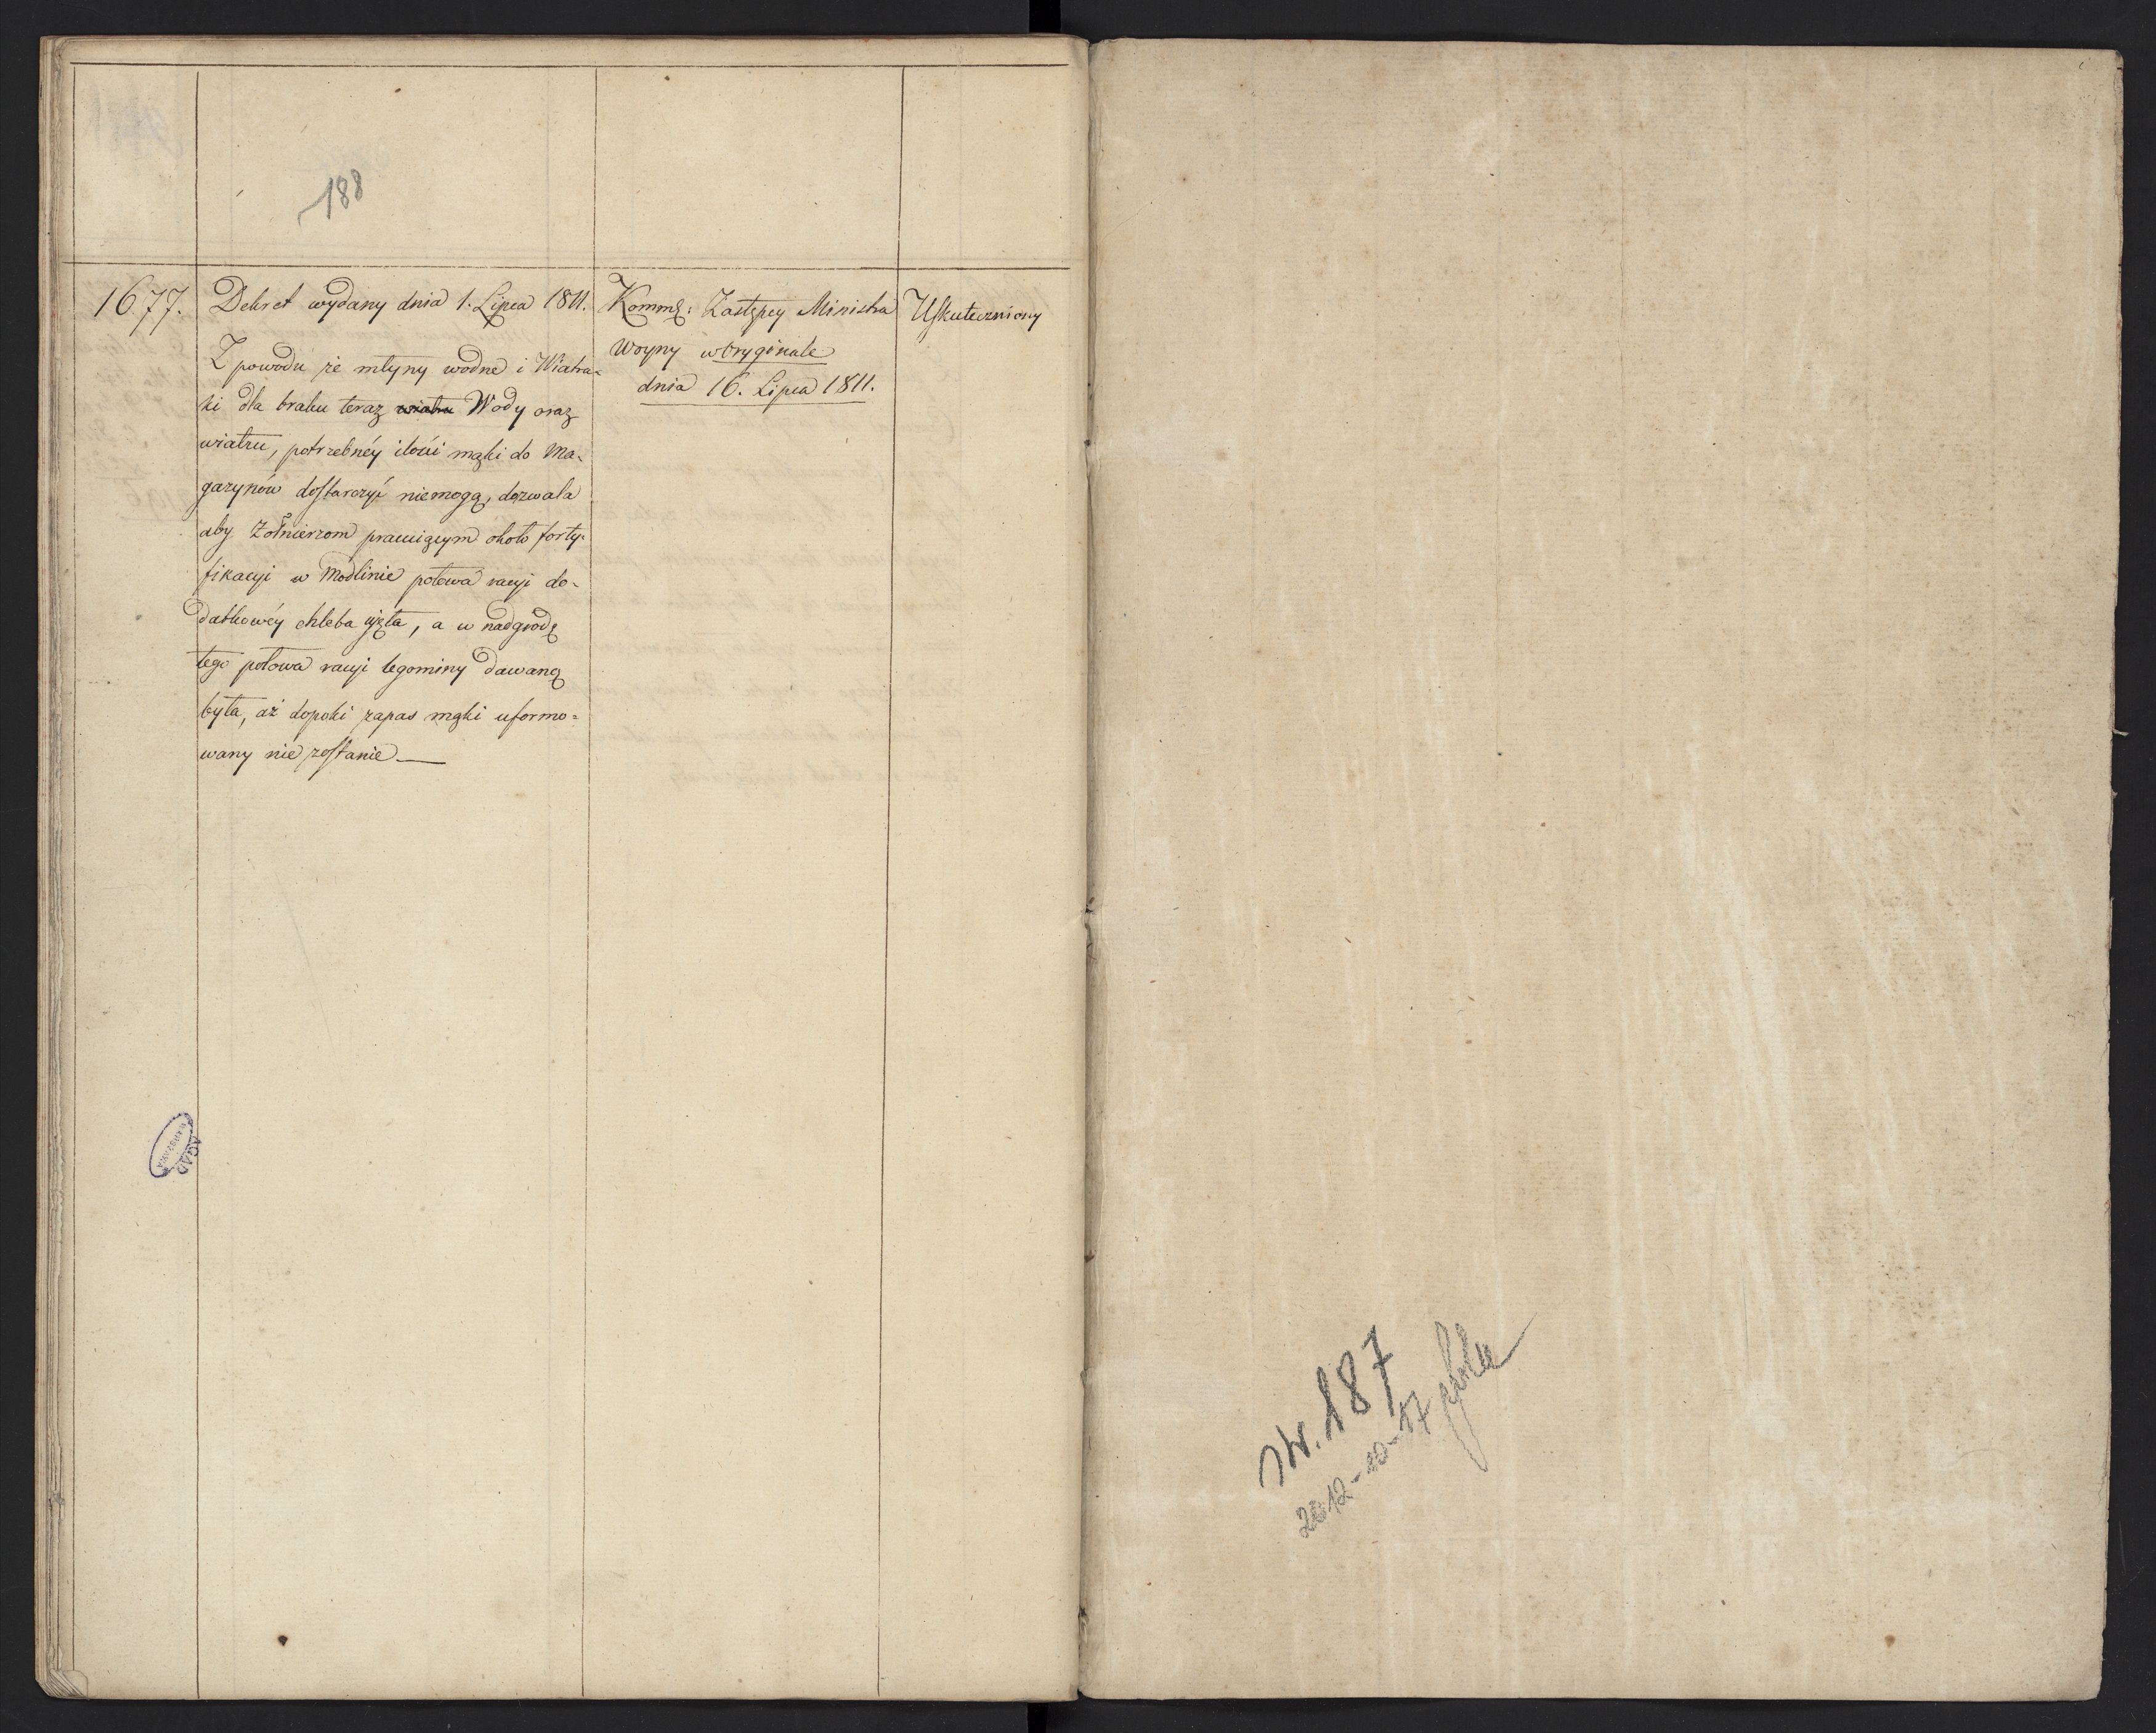 188
1677.
Dekret wydany dnia 1. Lipca 1811.
Z powodu że młyny wodne i Wiatra-
ki dla braku teraz wiatru Wody oraz
wiatru, potrzebnéy ilości mąki do Ma-
gazynów dostarczyć niemogą, dozwala
aby Żołnierzom pracuiącym około forty-
fikacyi w Modlinie połowa racyi do-
datkowéy chleba ujęta, a w nadgrodę
tego połowa racyi legominy dawaną
była, aż dopoki zapas mąki uformo=
wany nie zostanie
Kommę: Zastępcy Ministra
Woyny w Oryginale
dnia 16. Lipca 1811.
Uskuteczniony
AGAD
WARSZAWA
str. 187
2012-10-17